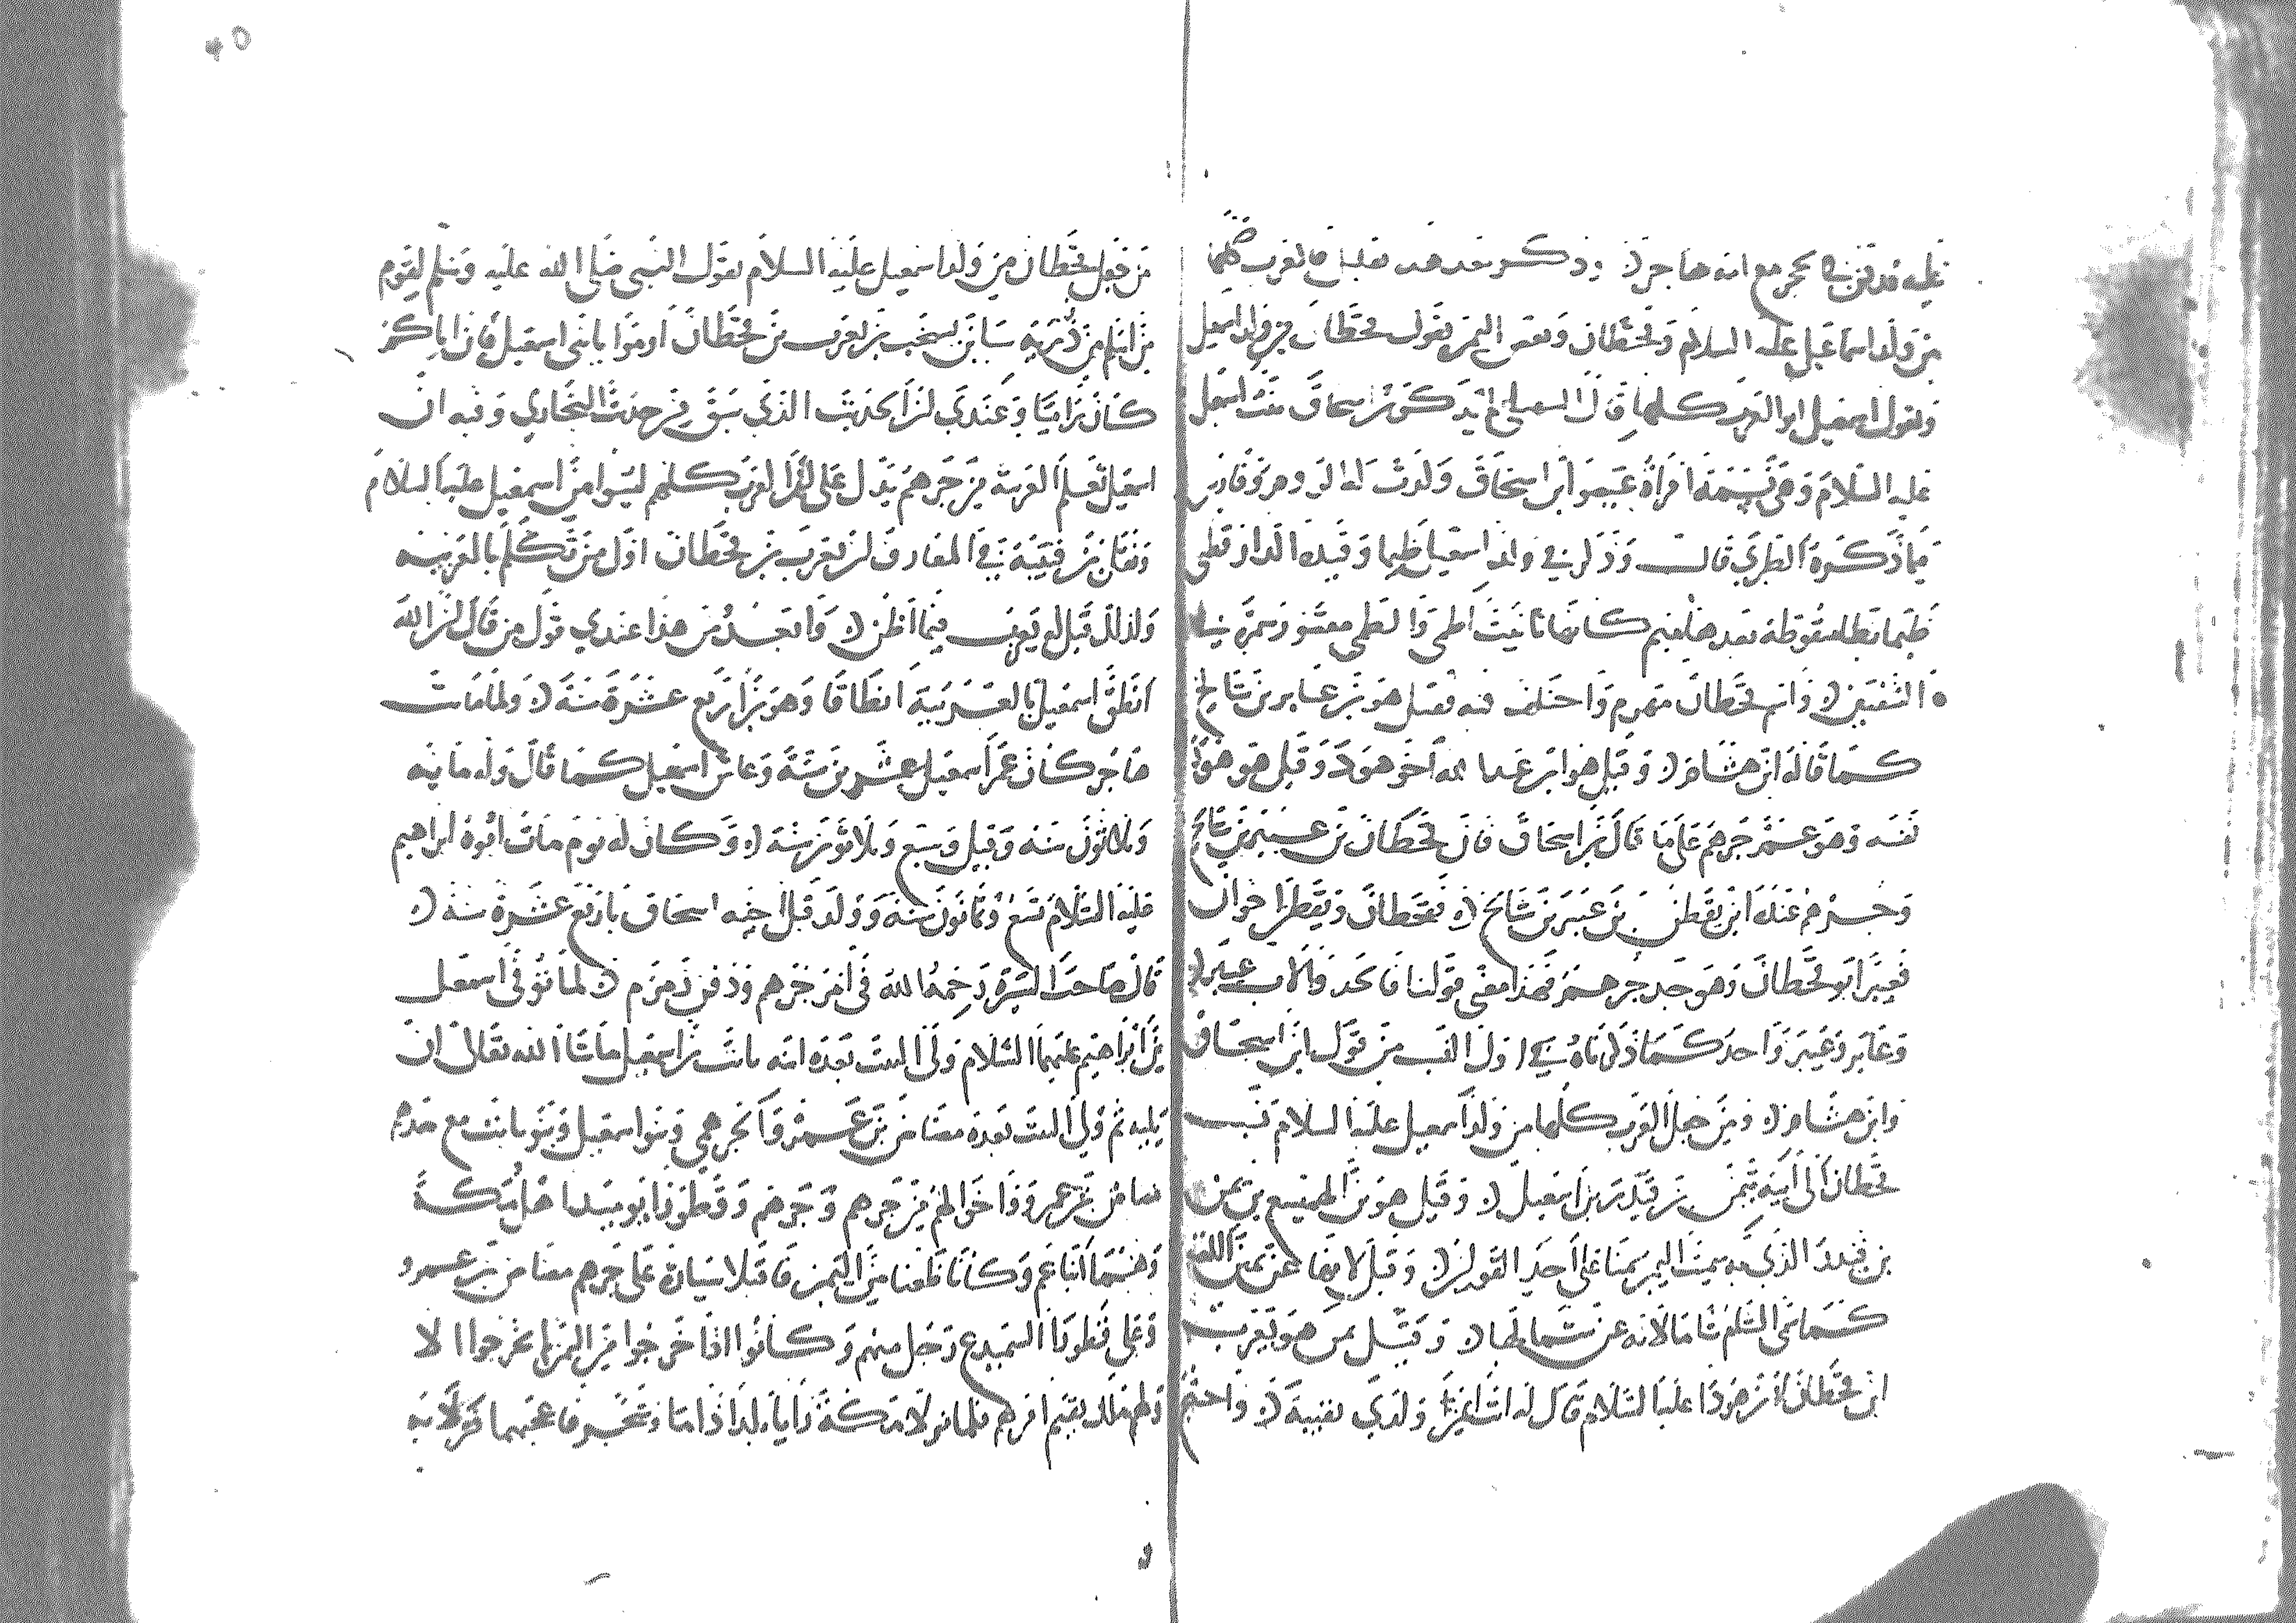 عليه قد دفن بالحجر مع امه هاجر وذكر بعد هذه فالعرب كلها
من ولد اسماعيل عليه السلام وقحطان وبعض اليمن يقول قحطان من ولد اسمعيل
ويقول اسمعيل ابو العرب كلها قال السهيلي لم يذكر بن اسحاق بنت اسمعيل
عليه السلام وهي نسمة امراة عيصو ابن اسحاق ولدت له الروم وفارس
فيما ذكره الطبري قال وذكر في ولد اسمعيل طيما وقيده الدارقطني
ظميا بظا منقوطة بعدها ميم كانها تانيث اظمى والظمى مقصور سمرة في
الشفتين واسم قحطان مهزم واختلف فيه فقيل هو بن عابر بن شالخ
كما قاله ابن هشام وقيل هو ابن عبد الله اخو هود وقيل هو هود
نفسه وهو عم جرهم على ما قال بن اسحاق فان قحطان بن عيبر بن شالخ
وجرهم عنده ابن يقطن بن عيبر بن شالخ فقحطان ويقطن اخوان
فعيبر ابو قحطان وهو جد جرهم فهذا معنى قولنا فالجد والاب عيبر
وعابر وعيبر واحد كما ذكرناه في اول النسب من قول ابن اسحاق
وابن هشام ومن جعل العرب كلها من ولد اسمعيل عليه السلام نسب
قحطان الى ابنه يمن بن قيذر بن اسمعيل وقيل هو بن الهميسع بن يمن
بن قيذر الذي به سميت اليمن يمنا على احد القولين وقيل لانها عن يمين الكعبة
كما سمي الشام شاما لانه عن شمالها وقيل يمن هو يعرب
ابن قحطان بن هود عليه السلام قال له انت ايمن ولدي نقيبة واحتج
من جعل قحطان من ولد اسمعيل عليه السلام بقول النبي صلى الله عليه وسلم لقوم
من اسلم من ذرية سبا بن يشجب بن يعرب بن قحطان ارموا يا بني اسمعيل فان اباكم
كان راميا وعندي ان الحديث الذي سبق من حديث البخاري وفيه ان
اسمعيل تعلم العربية من جرهم يدل على ان العرب كلهم ليسوا من اسمعيل عليه السلام
ونقل بن قتيبة في المعارف ان يعرب بن قحطان اول من تكلم بالعربية
ولذلك قيل له يعرب فيما اظن وابعد من هذا عندي قول من قال ان الله
انطق اسمعيل بالعربية انطاقا وهو بن اربع عشرة سنة ولما ماتت
هاجر كان عمر اسمعيل عشرين سنة وعاش اسمعيل كما قال وله مايه
وثلاثون سنه وقيل وسبع وثلاثون سنة وكان له يوم مات ابوه ابراهيم
عليه السلام تسع وثمانون سنة وولد قبل اخيه اسحاق باربع عشرة سنة
قال صاحب السيرة رحمه الله في امر جرهم ودفن زمزم لما توفي اسمعيل
بن ابراهيم عليهما السلام ولي البيت بعده ابنه نابت بن اسمعيل ما شا الله تعالى ان
يليه ثم ولي البيت بعده مضاض بن عمرو الجرهمي وبنو اسمعيل وبنو نابت مع جدهم
مضاض بن عمرو واخوالهم من جرهم وجرهم وقطورا يوميذ اهل مكة
وهما ابنا عم وكانا ظعنا من اليمن فاقبلا سيارة على جرهم مضاض بن عمرو
وعلى قطورا السميدع رجل منهم وكانوا اذا خرجوا من اليمن لم يخرجوا الا
ولهم ملك يقيم امرهم فلما نزلا مكة رايا بلدا ذا ما وشجر فاعجبهما فنزلا به